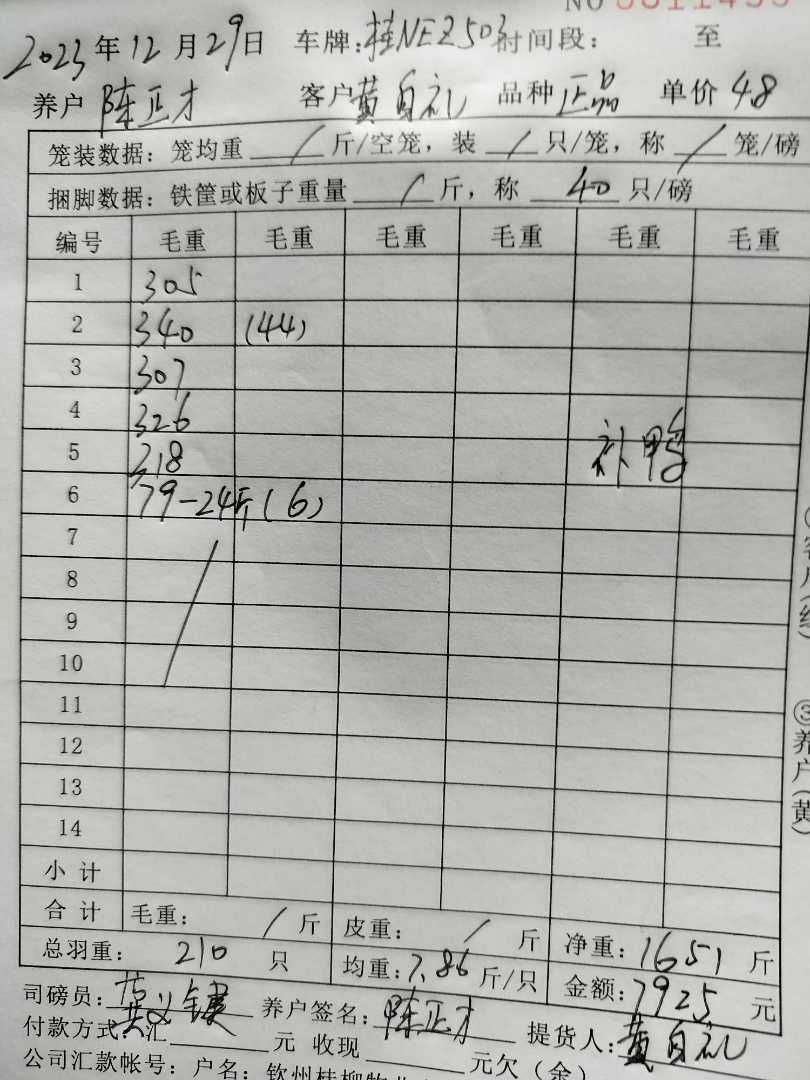 NO 0811455
2023年12月29日 车牌:桂NEZ503 时间段: 至
养户 陈正才 客户 黄自礼 品种 正品 单价 4.8
笼装数据: 笼均重 / 斤/空笼, 装 / 只/笼, 称 / 笼/磅
捆脚数据: 铁筐或板子重量 / 斤, 称 40 只/磅
编号 毛重 毛重 毛重 毛重 毛重 毛重
1 305
2 340 (44)
3 307
4 326
5 318 补鸭
6 79-24斤(6)
7
8
9
10
11
12
13
14
小计
合计 毛重: / 斤 皮重: / 斤 净重: 1651 斤
总羽重: 210 只 均重: 7.86 斤/只 金额: 7925 元
司磅员: 养户签名: 陈正才 提货人: 黄自礼
付款方式: 汇 元 收现 元欠(余)
公司汇款帐号: 户名: 钦州桂柳牧业
客户(红)
③养户(黄)